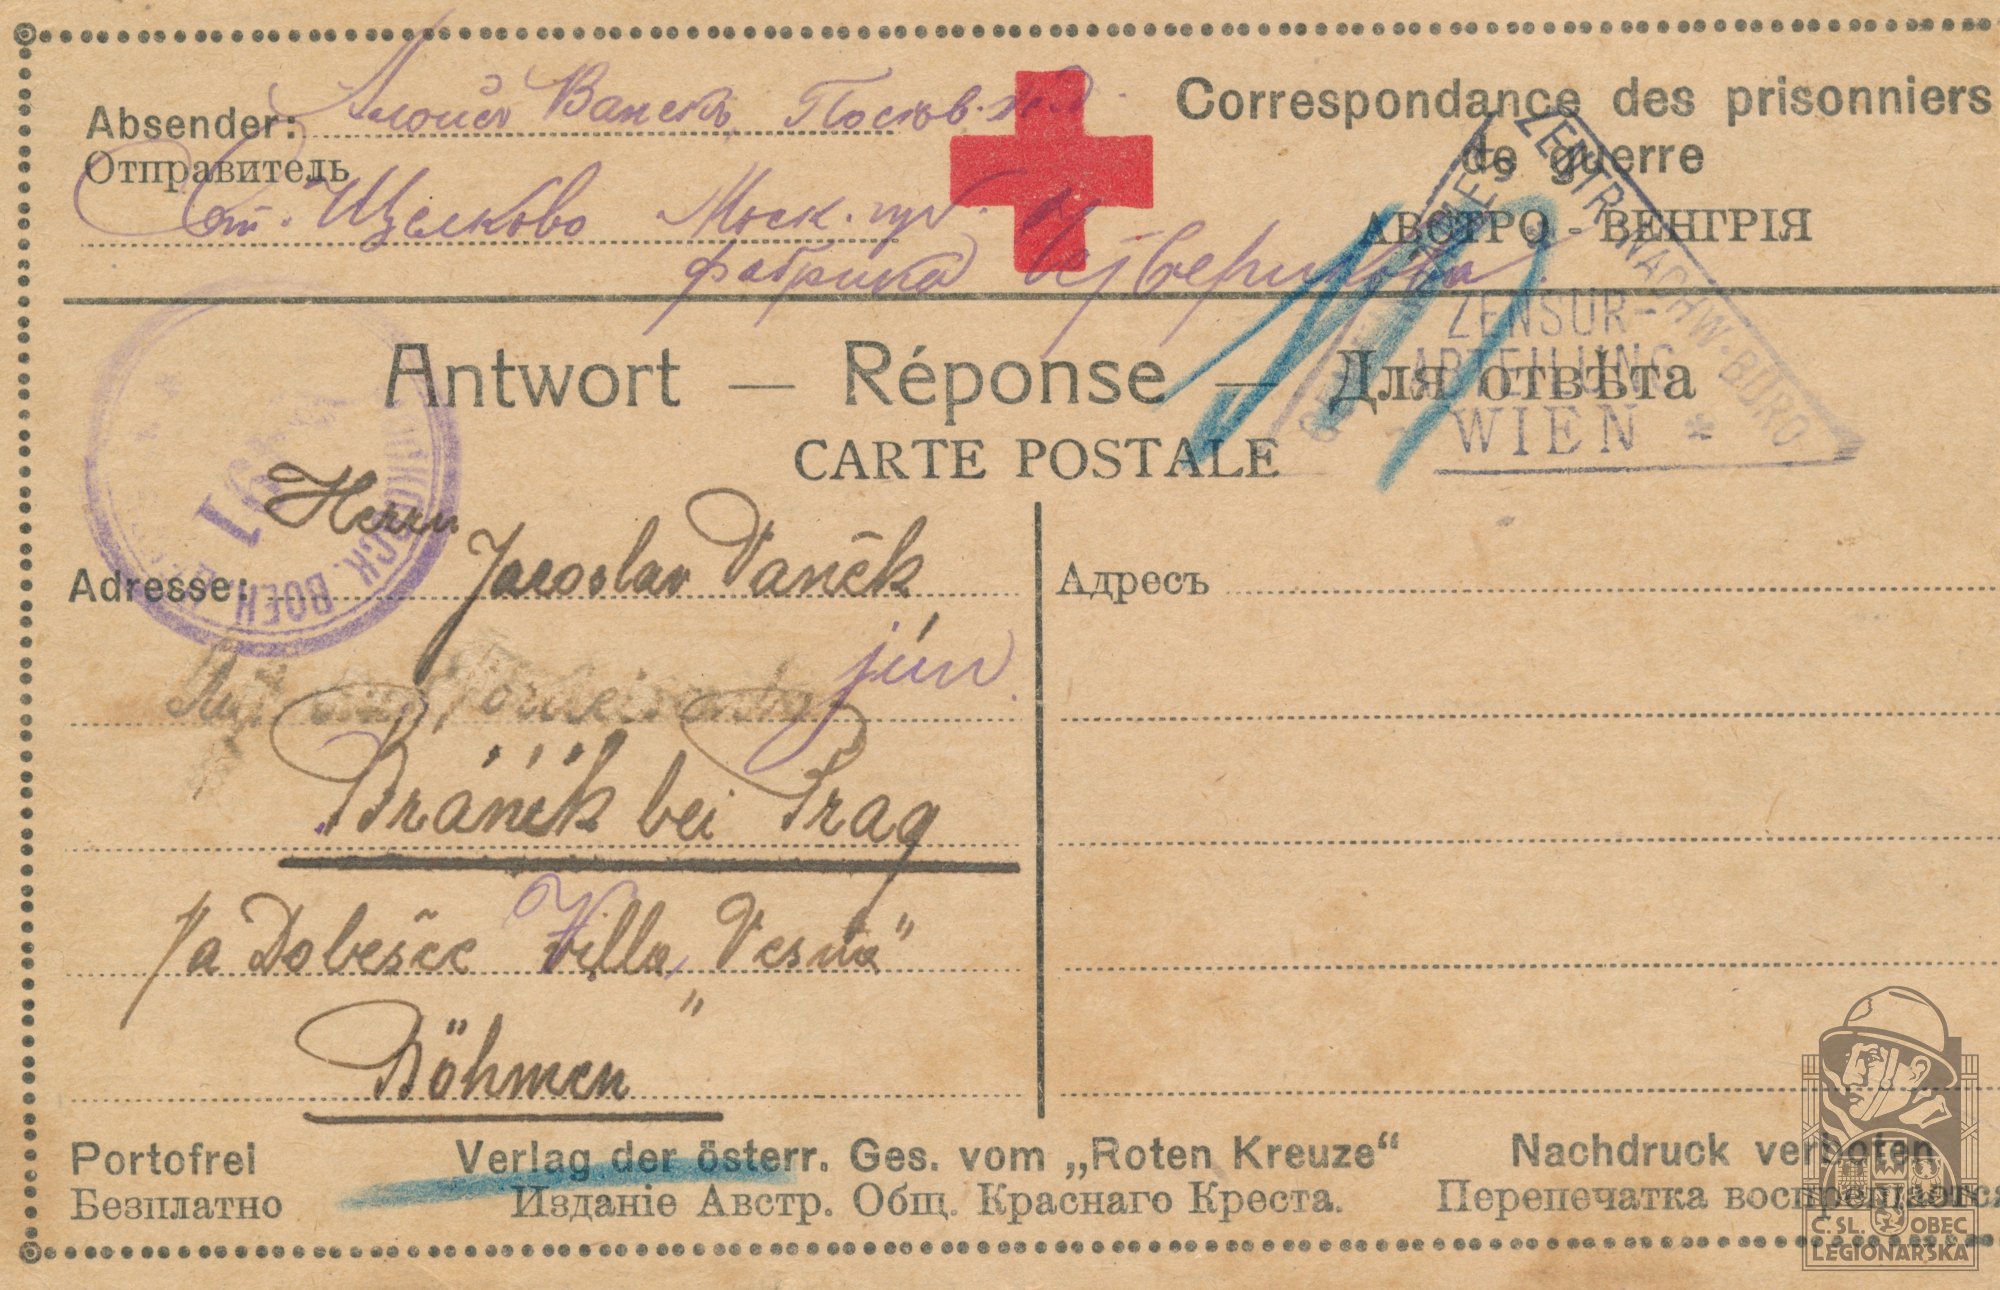 Correspondance des prisonniers
de guerre
АВСТРО - ВЕНГРІЯ
Absender: Алоизъ Ванекъ,
Отправитель
ст. Щелково Моск. губ.
фабрика Четверикова.
ZENTR. NACHW. BÜRO
ZENSUR-
ABTEILUNG
WIEN *
Antwort — Réponse — Для отвѣта
CARTE POSTALE
Herrn
Adresse: Jaroslav Vaněk
jun.
Bránik bei Prag
Na Dobešce Villa „Vesna"
Böhmen
Адресъ
Portofrei
Безплатно
Verlag der österr. Ges. vom „Roten Kreuze“
Изданіе Австр. Общ. Краснаго Креста.
Nachdruck verboten
Перепечатка воспрещается
Č.SL. OBEC
LEGIONÁŘSKÁ